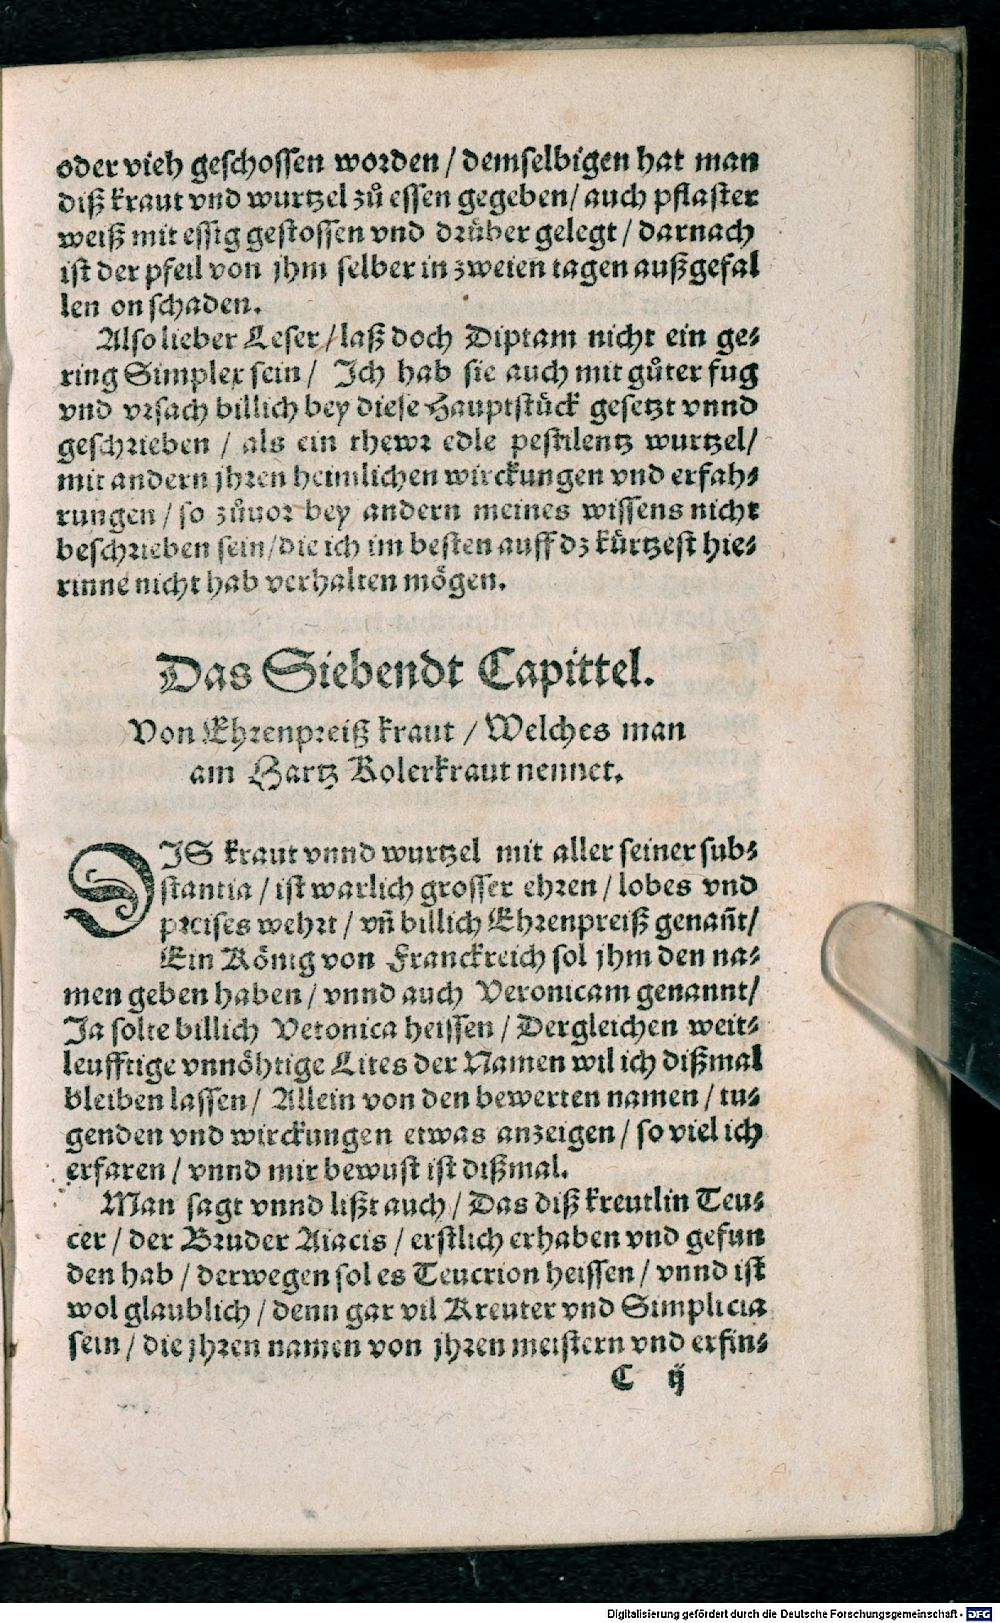 oder vieh geschossen worden / demselbigen hat man
diß kraut vnd wurtzel zů essen gegeben / auch pflaster
weiß mit essig gestossen vnd drüber gelegt / darnach
ist der pfeil von jhm selber in zweien tagen außgefal
len on schaden.
Also lieber Leser / laß doch Diptam nicht ein ge-
ring Simplex sein / Ich hab sie auch mit gůter fug
vnd vrsach billich bey diese Hauptstück gesetzt vnnd
geschrieben / als ein thewr edle pestilentz wurtzel /
mit andern jhren heimlichen wirckungen vnd erfah-
rungen / so zůuor bey andern meines wissens nicht
beschrieben sein / die ich im besten auff dz kürtzest hie-
rinne nicht hab verhalten mögen.
Das Siebendt Capittel.
Von Ehrenpreiß kraut / Welches man
am Hartz Kolerkraut nennet.
DIS kraut vnnd wurtzel mit aller seiner sub-
stantia / ist warlich grosser ehren / lobes vnd
preises wehrt / vñ billich Ehrenpreiß genañt /
Ein König von Franckreich sol jhm den na-
men geben haben / vnnd auch Veronicam genannt /
Ja solte billich Vetonica heissen / Dergleichen weit-
leufftige vnnöhtige Lites der Namen wil ich dißmal
bleiben lassen / Allein von den bewerten namen / tu-
genden vnd wirckungen etwas anzeigen / so viel ich
erfaren / vnnd mir bewust ist dißmal.
Man sagt vnnd lißt auch / Das diß kreutlin Teu-
cer / der Bruder Aiacis / erstlich erhaben vnd gefun
den hab / derwegen sol es Teucrion heissen / vnnd ist
wol glaublich / denn gar vil Kreuter vnd Simplicia
sein / die jhren namen von jhren meistern vnd erfin-
C ij
Digitalisierung gefördert durch die Deutsche Forschungsgemeinschaft - DFG